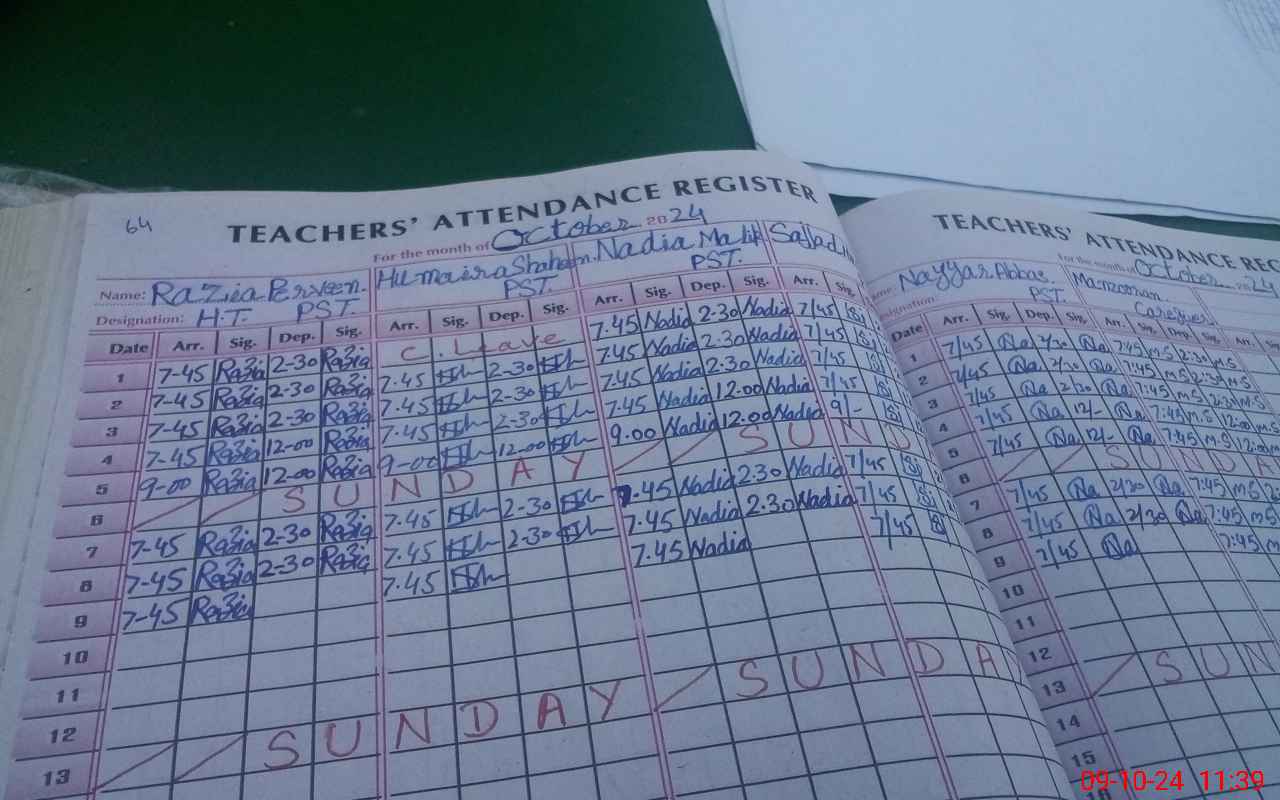 64
TEACHERS' ATTENDANCE REGISTER
For the month of October 2024
Name: Razia Perveen Humaira Shaheen Nadia Malik Sajjad
Designation: H.T. PST. PST. PST.
Date Arr. Sig. Dep. Sig. Arr. Sig. Dep. Sig. Arr. Sig. Dep. Sig. Arr. Sig.
1 7-45 Razia 2-30 Razia C. Leave 7.45 Nadia 2-30 Nadia 7/45
2 7-45 Razia 2-30 Razia 7.45 2-30 7.45 Nadia 2.30 Nadia 7/45
3 7-45 Razia 2-30 Razia 7.45 2-30 7.45 Nadia 2.30 Nadia 7/45
4 7-45 Razia 12-00 Razia 7.45 12-00 7.45 Nadia 12.00 Nadia 7/45
5 9-00 Razia 12-00 Razia 9-00 12-00 9.00 Nadia 12.00 Nadia 9/-
6 SUNDAY SUND
7 7-45 Razia 2-30 Razia 7.45 2-30 7.45 Nadia 2.30 Nadia 7/45
8 7-45 Razia 2-30 Razia 7.45 2-30 7.45 Nadia 2.30 Nadia 7/45
9 7-45 Razia 7.45 7.45 Nadia 7/45
10
11
12
13 SUNDAY SUNDA
TEACHERS' ATTENDANCE REG
For the month of October 2024
Name: Nayyar Abbas
Designation: PST. Caregiver
Date Arr. Sig. Dep. Sig. Arr. Sig. Dep. Sig. Arr.
1 7/45 Na 2/30 Na 7:45 M.S 2:30 M.S
2 7/45 Na 2/30 Na 7:45 M.S 2:30 M.S
3 7/45 Na 2/30 Na 7:45 M.S 2:30 M.S
4 7/45 Na 12/- Na 7:45 M.S 12:00 M.S
5 7/45 Na 12/- Na 7:45 M.S 12:00
6 SUNDA
7 7/45 Na 2/30 Na 7:45 M.S
8 7/45 Na 2/30 Na 7:45 M.S
9 7/45 Na 7:45 M
10
11
12
13 SUN
14
15
16
09-10-24 11:39